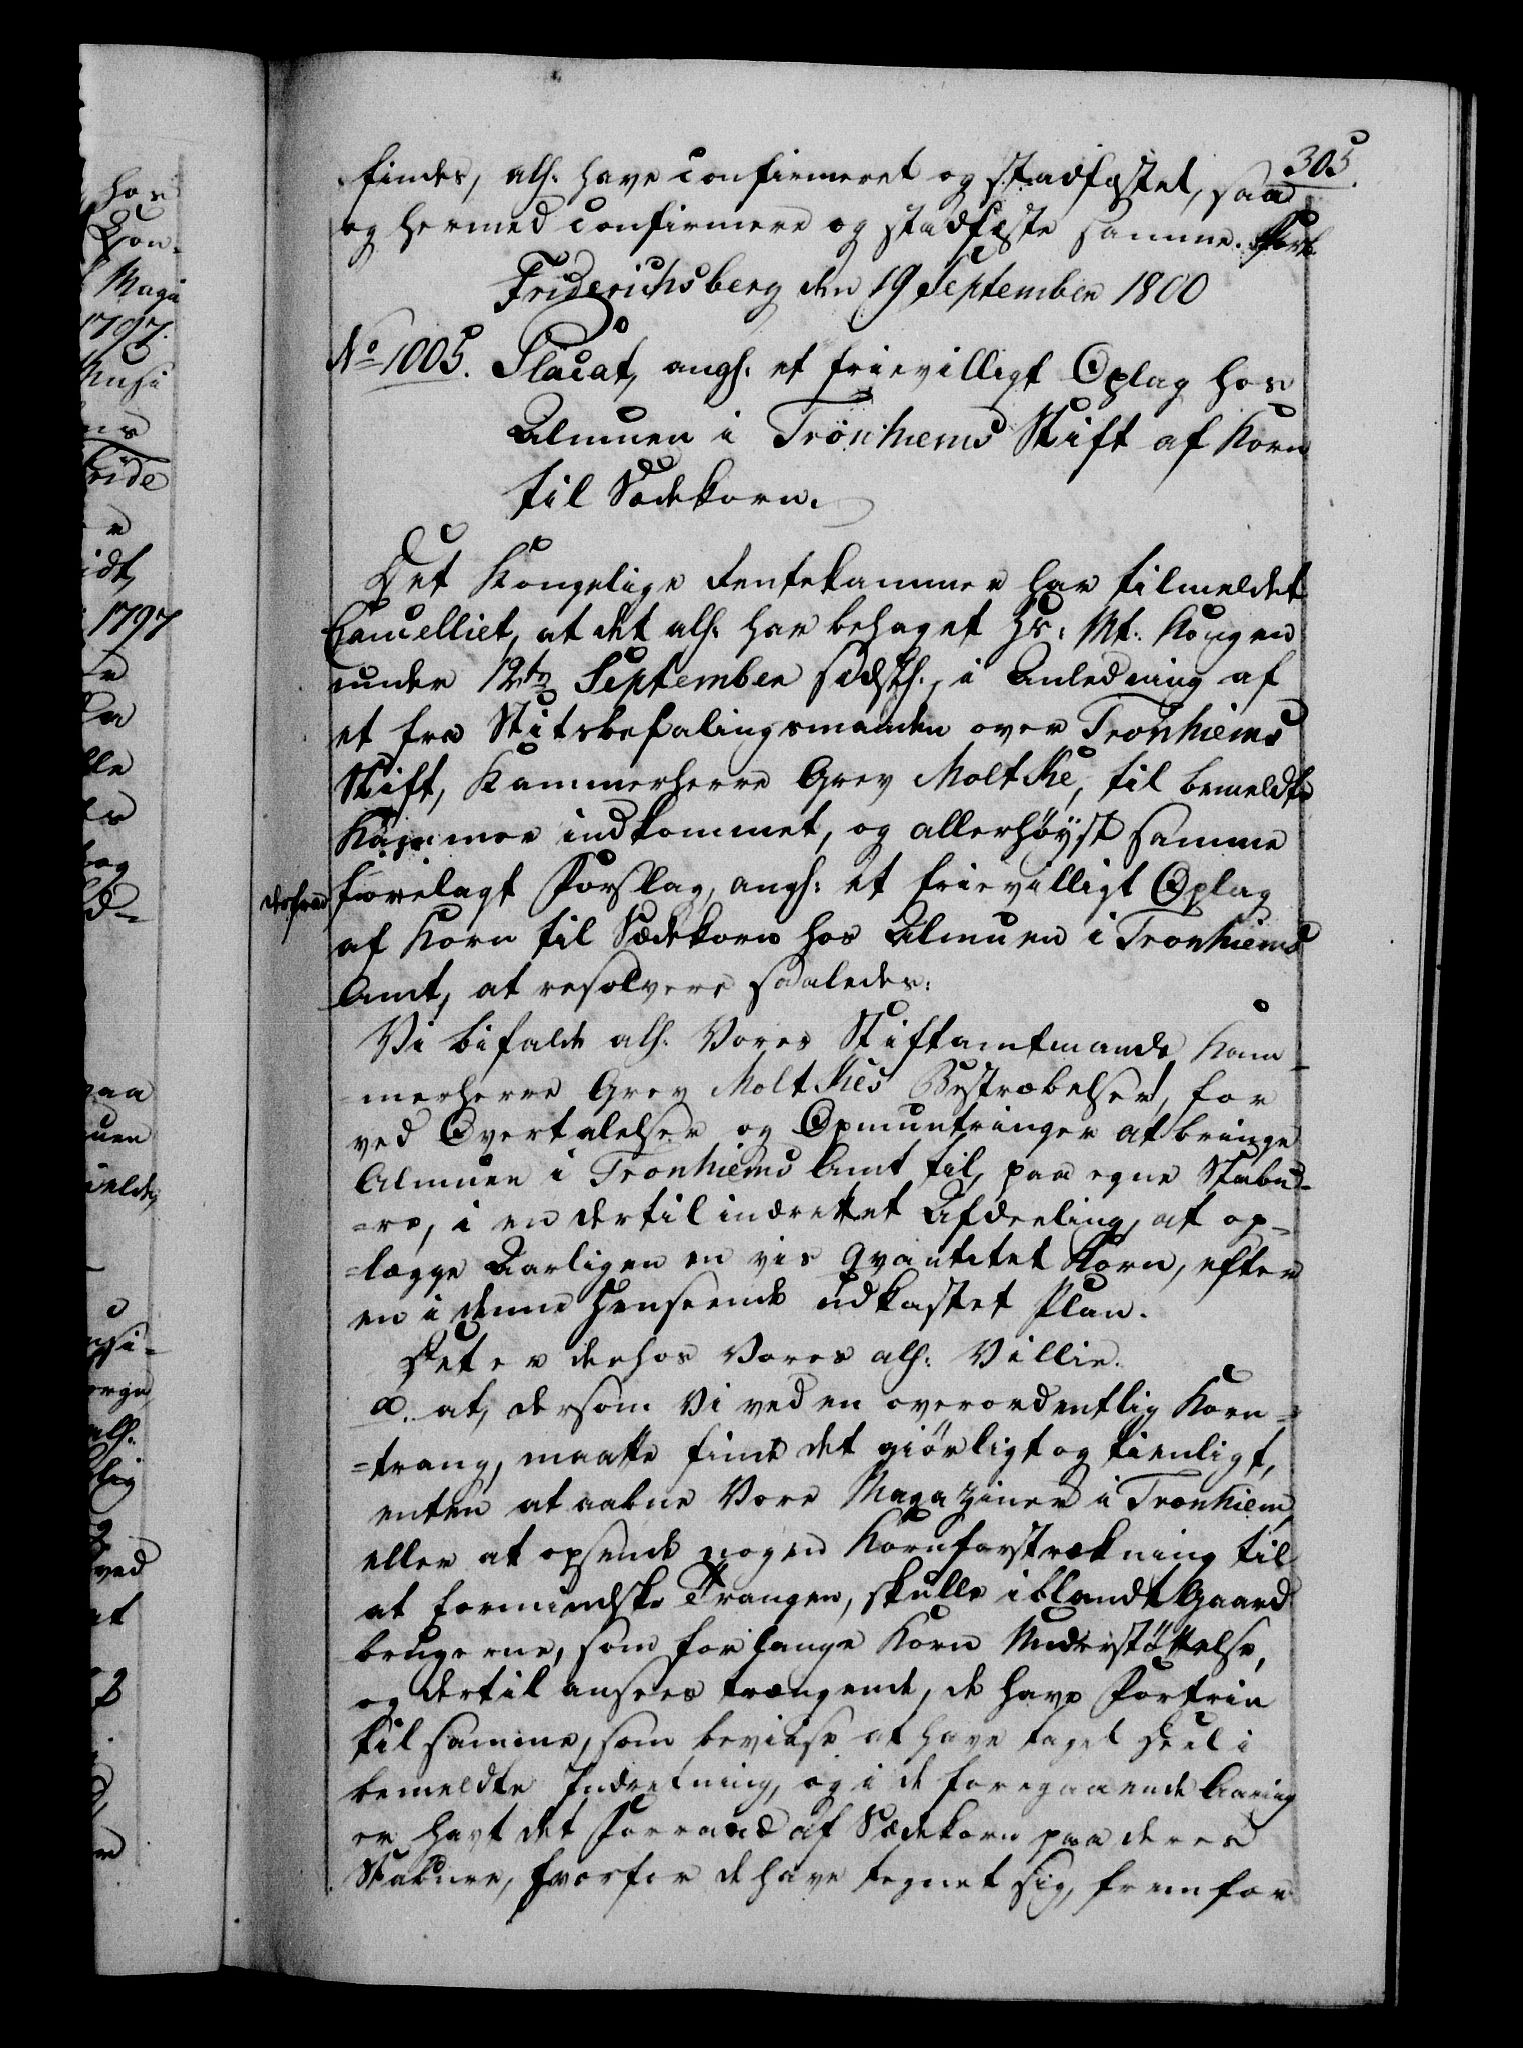 305.
findes, alh. have confirmeret og stadfæstet, saa
og hermed confirmere og stadfæste samme. Forb.
Friderichsberg den 19 September 1800
No 1005. Placat, angh. et frievilligt Oplag hos
Almuen i Tronhiems Stift af Korn
til Sædekorn.
Det Kongelige Rentekammer har tilmeldet
Cancelliet, at det alh. har behaget Hs: Mt. Kongen
under 12te September sidsth., i Anledning af
et fra Stiftsbefalingsmanden over Tronhiems
Stift, Kammerherre Grev Moltke, til bemeldte
Kammer indkommet, og allerhøyst samme
forelagt Forslag, angh: et frievilligt Oplag
af Korn til Sædekorn hos Almuen i Tronhiems
Amt, at resolvere saaledes:
Vi bifalde alh. Vores Stiftamtmand Kam-
merherre Grev Moltkes Bestræbelser, for
ved Overtalelser og Opmuntringer at bringe
Almuen i Tronhiems Amt til, paa egne Stabu-
=re, i en dertil indrettet Afdeeling, at op-
=lægge Aarligen en vis Qvantitet Korn, efter
en i denne Henseende udkastet Plan.
Det er derhos Vores alh. Villie.
a. at, dersom Vi ved en overordentlig Korn=
=trang, maatte finde det giørligt og tienligt,
enten at aabne Vore Magaziner i Tronhiem,
eller at opsende nogen Kornforstrækning til
at formindske Trangen, skulle iblandt Gaard
brugerne, som forlange Korn Understøttelse,
og dertil ansees trængende, de have Fortrin
til samme, som beviise at have taget Deel i
bemeldte Indretning, og i de foregaaende Aaring
er havt det Forraad af Sædekorn paa deres
Stabure, hvorfor de have tegnet sig, fremfor